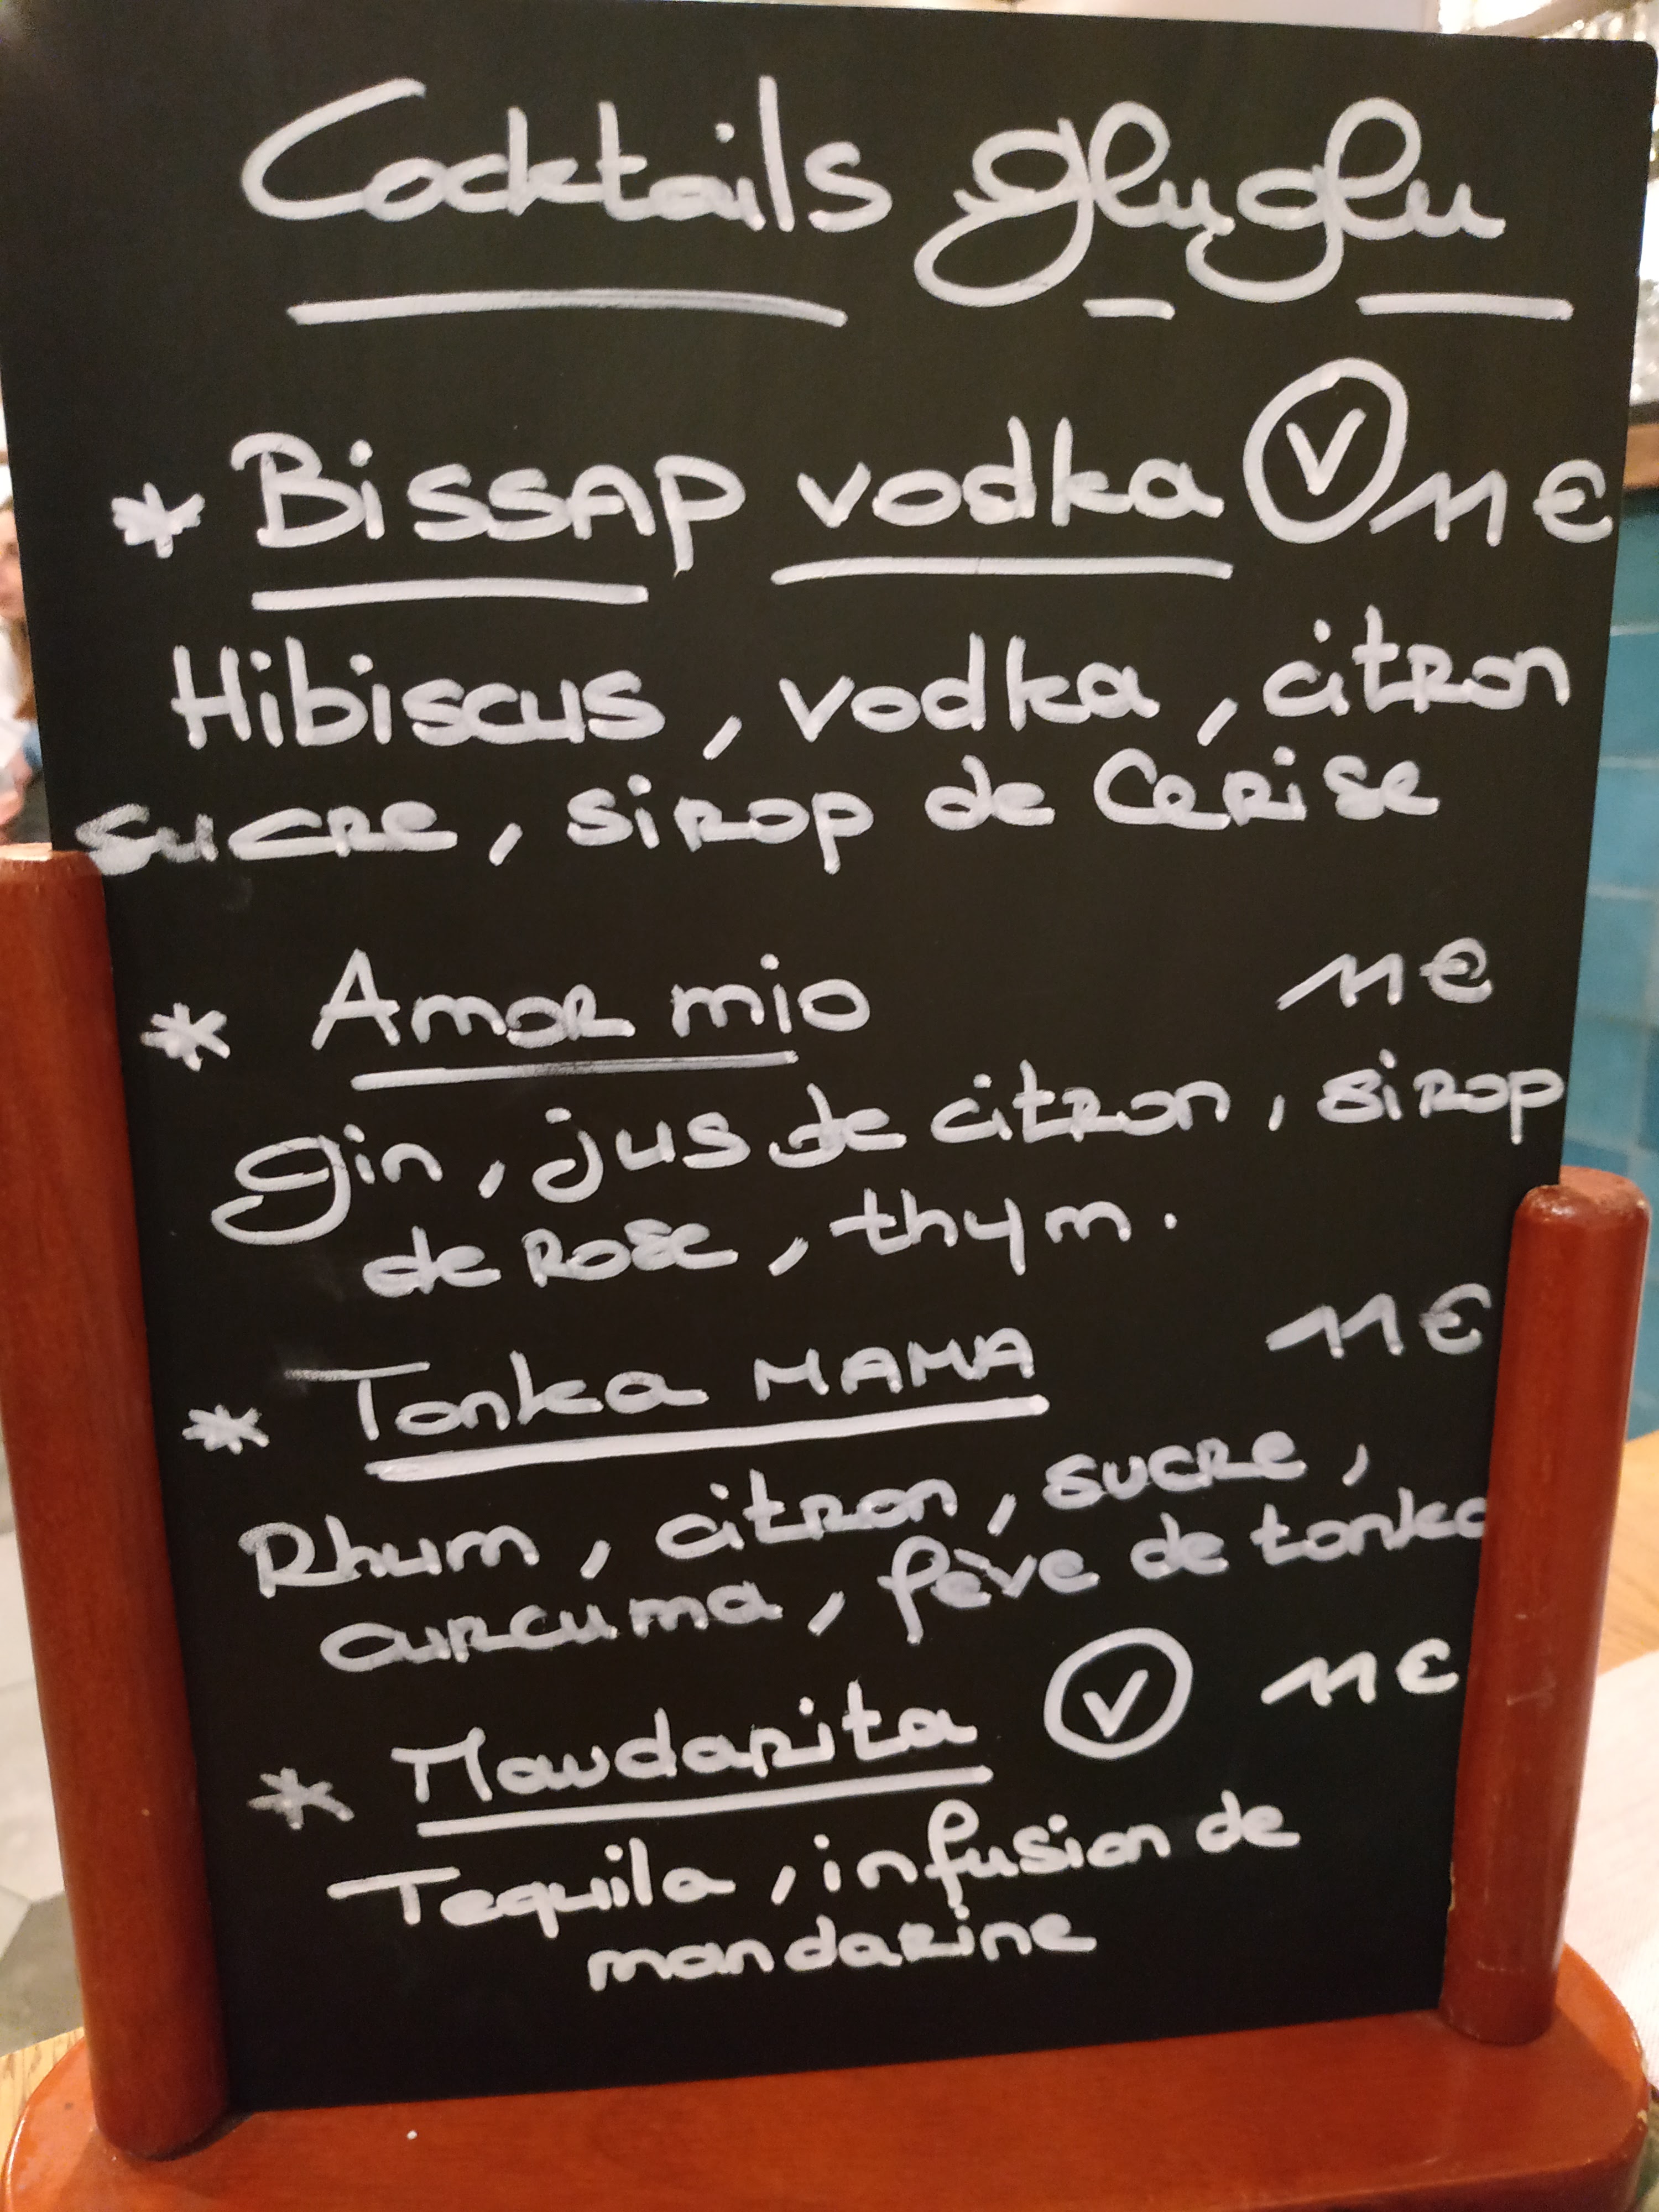 Cocktails gluglu
* BissAp vodka Ⓥ 11 €
Hibiscus, vodka, citron
sucre, sirop de Cerise
* Amor mio 11 €
gin, jus de citron, sirop
de Rose, thym.
* Tonka MAMA 11 €
Rhum, citron, sucre,
curcuma, fève de tonka
* Mawdarita Ⓥ 11 €
Tequila, infusion de
mandarine